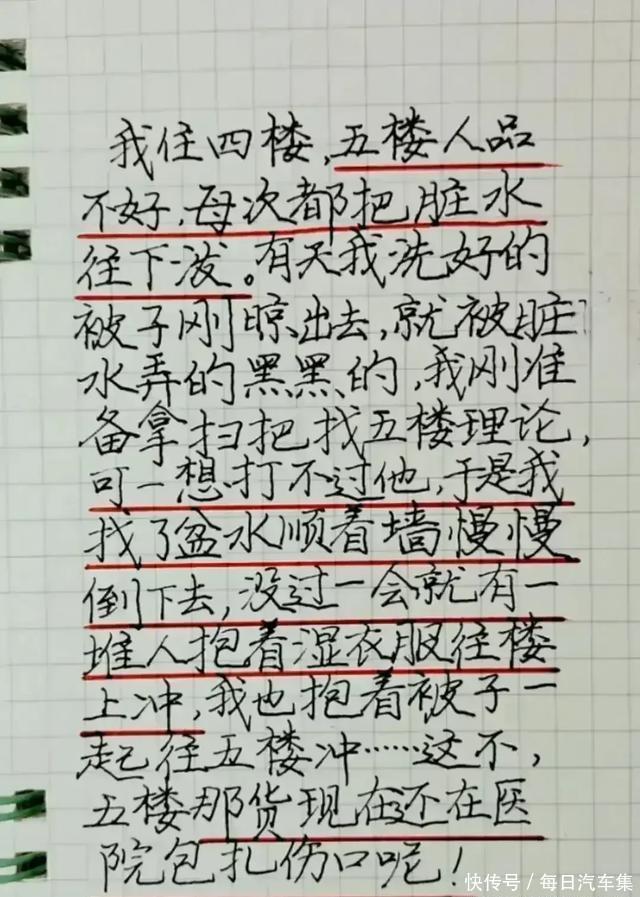 我住四楼,五楼人品
不好,每次都把脏水
往下泼。有天我洗好的
被子刚晾出去,就被脏
水弄的黑黑的,我刚准
备拿扫把找五楼理论,
可一想打不过他,于是我
找了盆水顺着墙慢慢
倒下去,没过一会就有一
堆人抱着湿衣服往楼
上冲,我也抱着被子一
起往五楼冲……这不,
五楼那货现在还在医
院包扎伤口呢!
快传号/每日汽车集